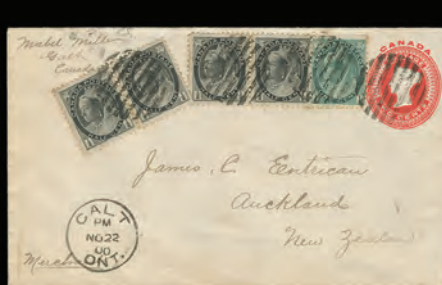 Mabel Miller
Galt
Canada
CANADA
CENTS
James. C. Entrican
Auckland
New Zealand
GALT
PM
NO 22
00
ONT.